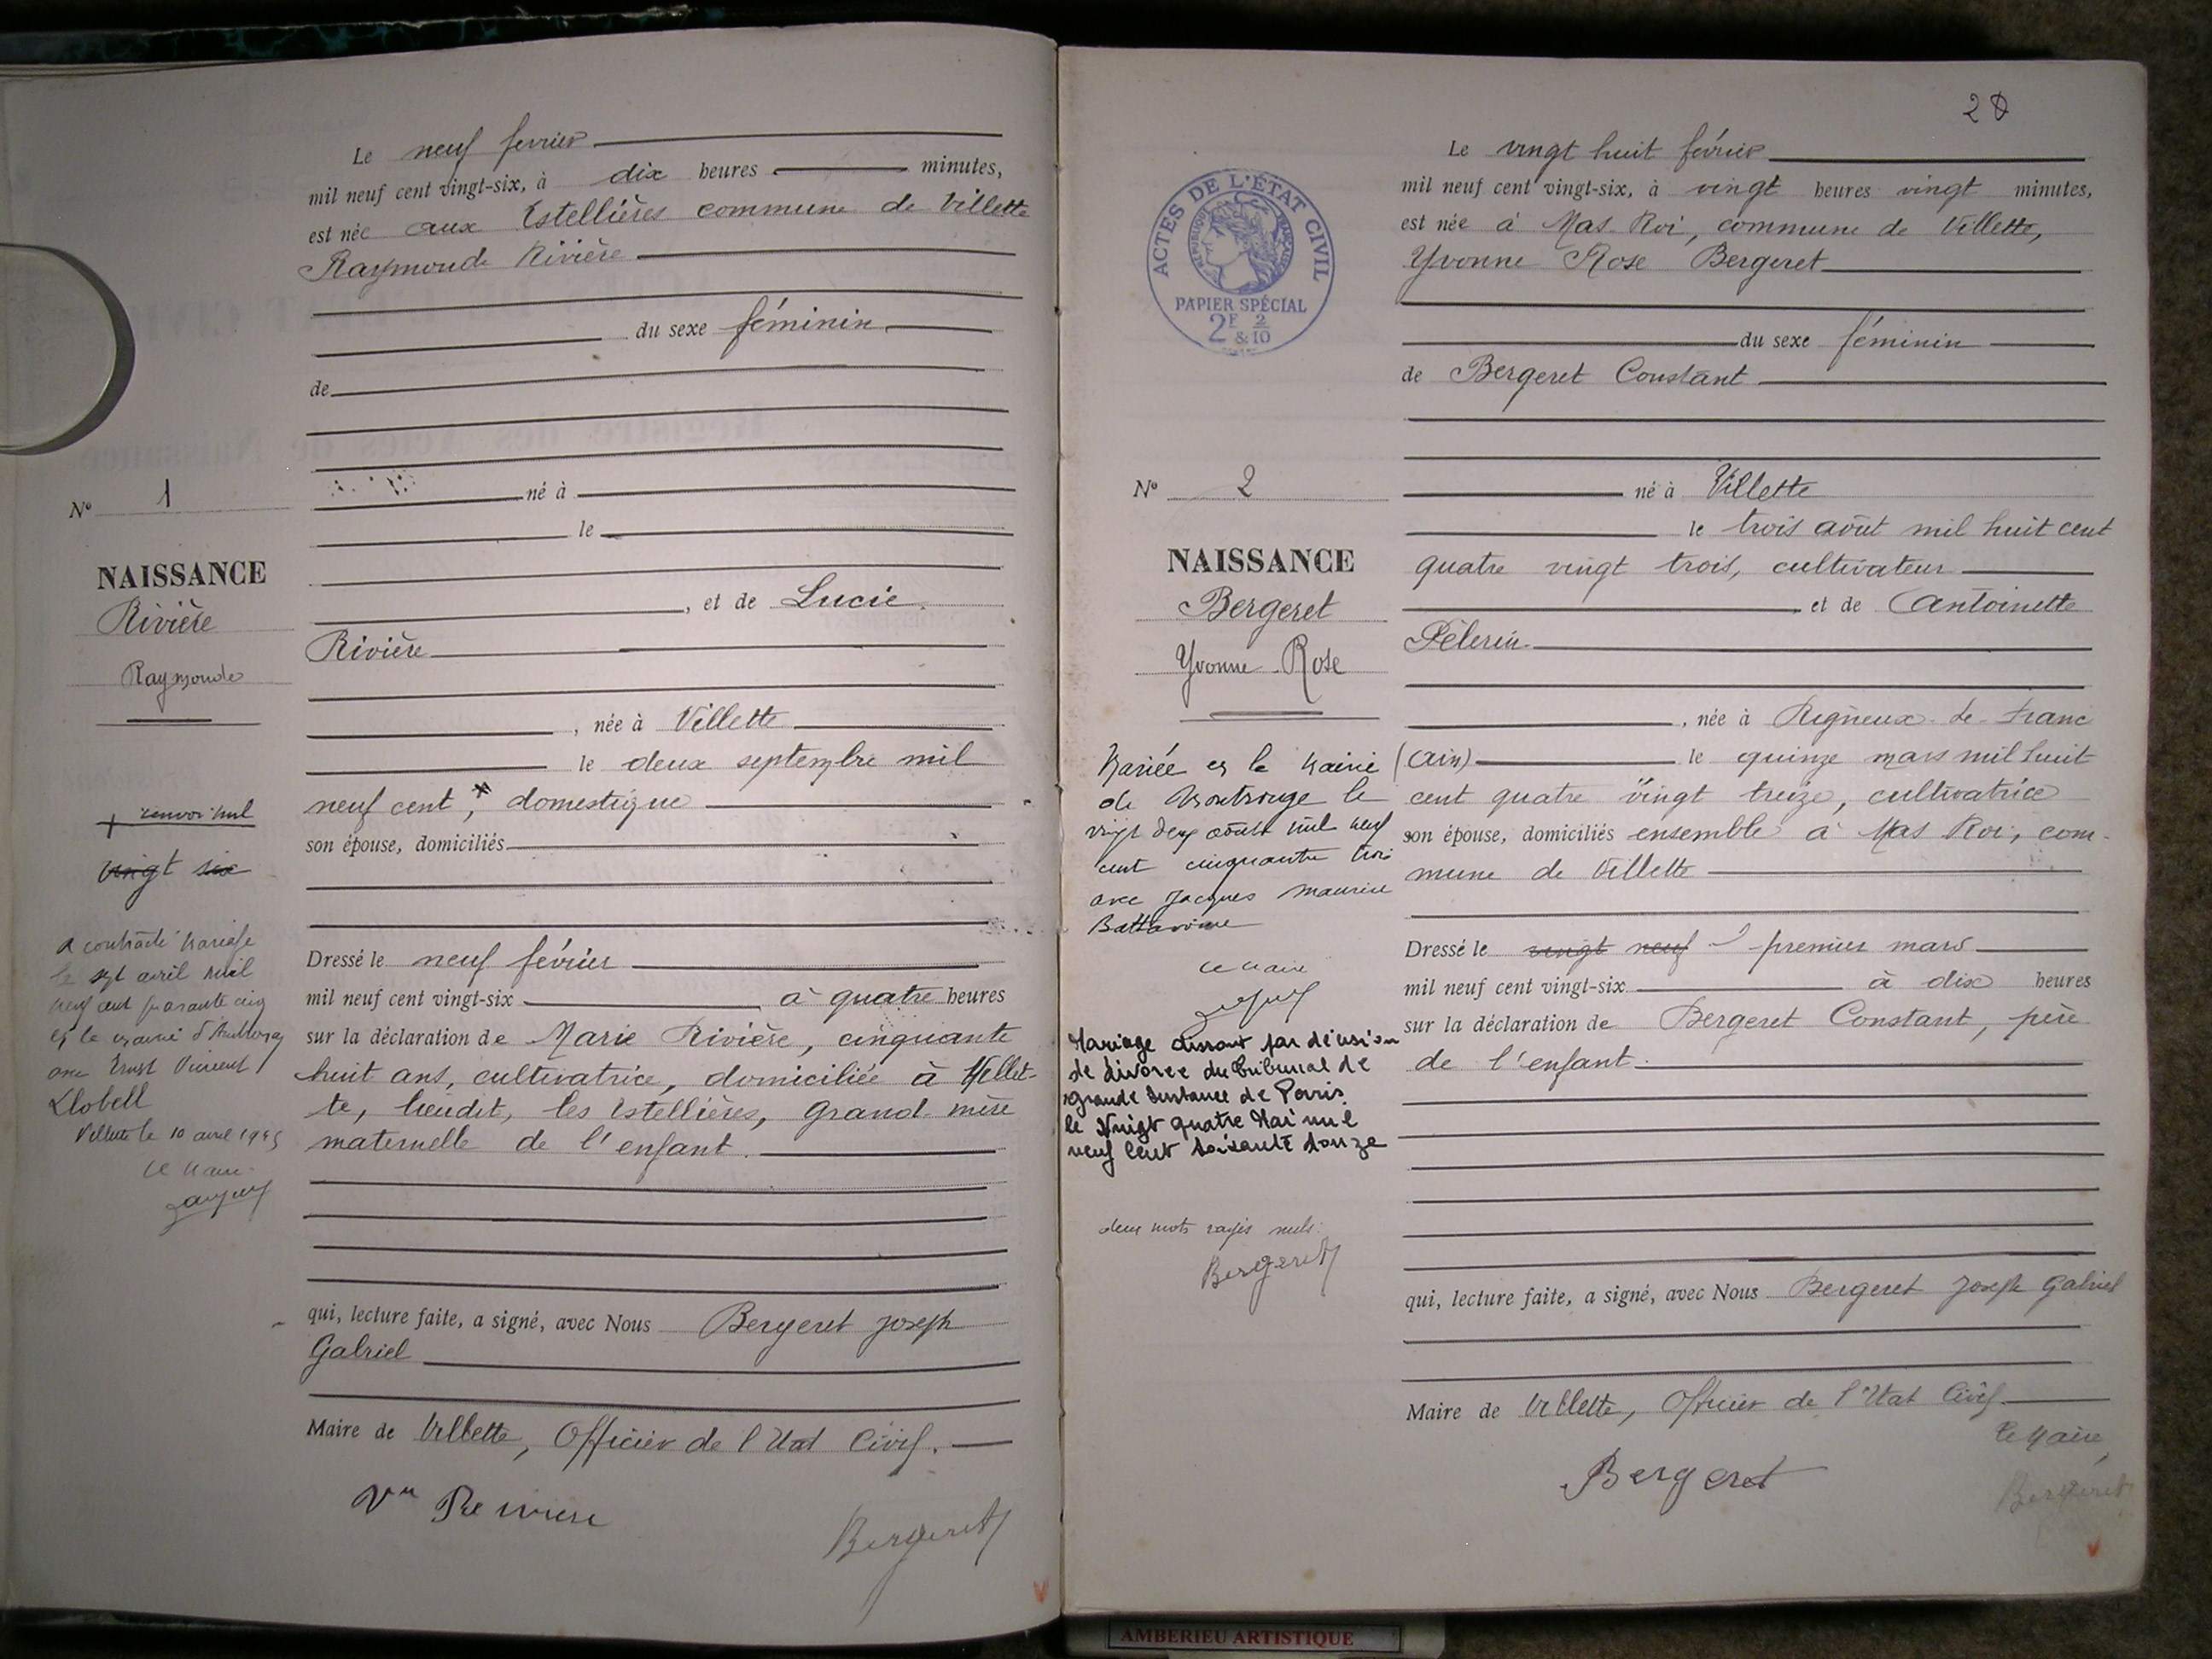 Le neuf fevrier
mil neuf cent vingt-six, à dix heures minutes,
est née aux Estellières commune de Villette
Raymonde Rivière
du sexe féminin
de
né à
le
, et de Lucie
Rivière
, née à Villette
le deux septembre mil
neuf cent, domestique
son épouse, domiciliés
Dressé le neuf février
mil neuf cent vingt-six à quatre heures
sur la déclaration de Marie Rivière, cinquante
huit ans, cultivatrice, domiciliée à Villet-
te, lieudit, les Estellières, grand-mère
maternelle de l'enfant.
qui, lecture faite, a signé, avec Nous Bergeret Joseph
Gabriel
Maire de Villette, Officier de l'Etat Civil.
Bergeret
Nº 1
NAISSANCE
Rivière
Raymonde
renvoi nul
vingt six
a contracté mariage
le sept avril mil
neuf cent quarante cinq
avec Ernest Vincent
Llobell
Villette le 10 avril 1945
Le Maire
20
Le vingt huit février
mil neuf cent vingt-six, à vingt heures vingt minutes,
est née à Mas Roi, commune de Villette,
Yvonne Rose Bergeret
du sexe féminin
de Bergeret Constant
né à Villette
le trois août mil huit cent
quatre vingt trois, cultivateur
et de Antoinette
Pèlerin
, née à Rigneux-le-Franc
(Ain) le quinze mars mil huit
cent quatre vingt treize, cultivatrice
son épouse, domiciliés ensemble à Mas Roi, com-
mune de Villette
Dressé le vingt neuf premier mars
mil neuf cent vingt-six à dix heures
sur la déclaration de Bergeret Constant, père
de l'enfant.
qui, lecture faite, a signé, avec Nous Bergeret Joseph Gabriel
Maire de Villette, Officier de l'Etat Civil.
Le Maire,
Bergeret
Bergeret
ACTES DE L'ÉTAT CIVIL
RÉPUBLIQUE FRANÇAISE
PAPIER SPÉCIAL
2F & 2/10
Nº 2
NAISSANCE
Bergeret
Yvonne Rose
Mariée en la Mairie
de Montrouge le
vingt deux août mil neuf
cent cinquante trois
avec Jacques Maurice
Le Maire
Mariage dissout par décision
de divorce du tribunal de
grande Instance de Paris
le vingt quatre Mai mil
neuf cent soixante douze
deux mots rayés nuls.
Bergeret
AMBERIEU ARTISTIQUE